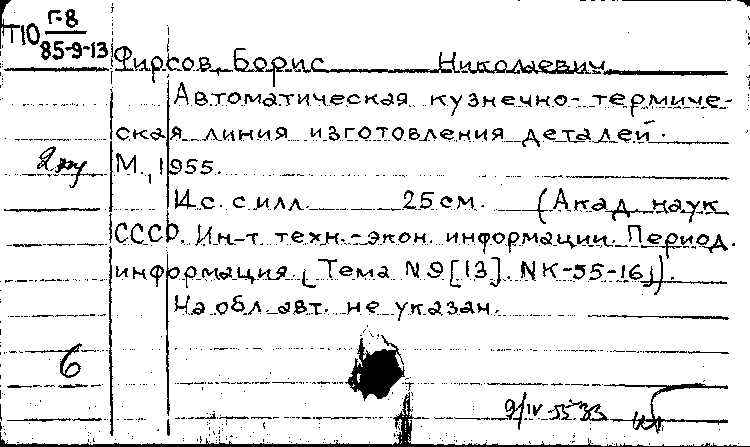 Т10 Г-8
85-9-13
Фирсов, Борис Николаевич
Автоматическая кузнечно-термиче-
ская линия изготовления деталей.
М., 1955.
с. с илл. 25 см. (Акад. наук
СССР. Ин-т техн.-экон. информации. Период.
информация. Тема N 9 [13]. NК-55-16).
На обл. авт. не указан.
6
9/IV-55